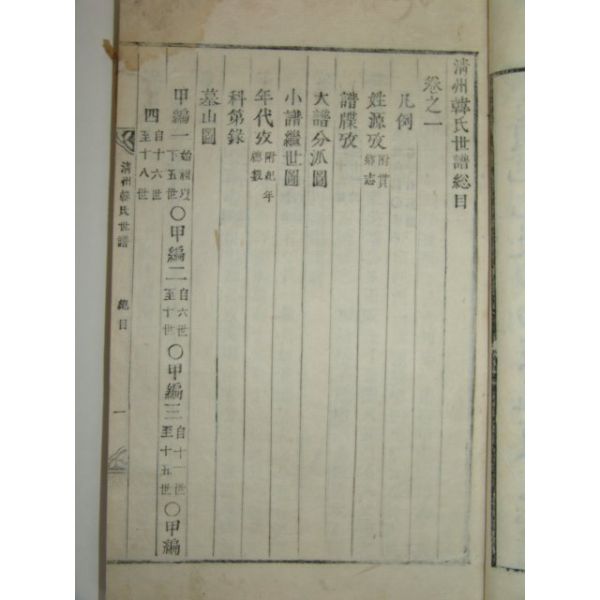 清州韓氏世譜總目
卷之一
凡例
姓源攷 附貫鄕志
譜牒攷
大譜分派圖
小譜繼世圖
年代攷 附紀年
科第錄
墓山圖
甲編一 下五世〇甲編二 自六世至十世〇甲編三 自十一世至十五世〇甲編
四 自十六世至十八世
清州韓氏世譜 總目 一